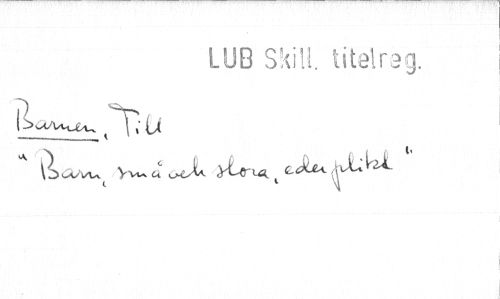 LUB Skill. titelreg.
Barnen, Till
"Barn, små och stora, eder plikt"